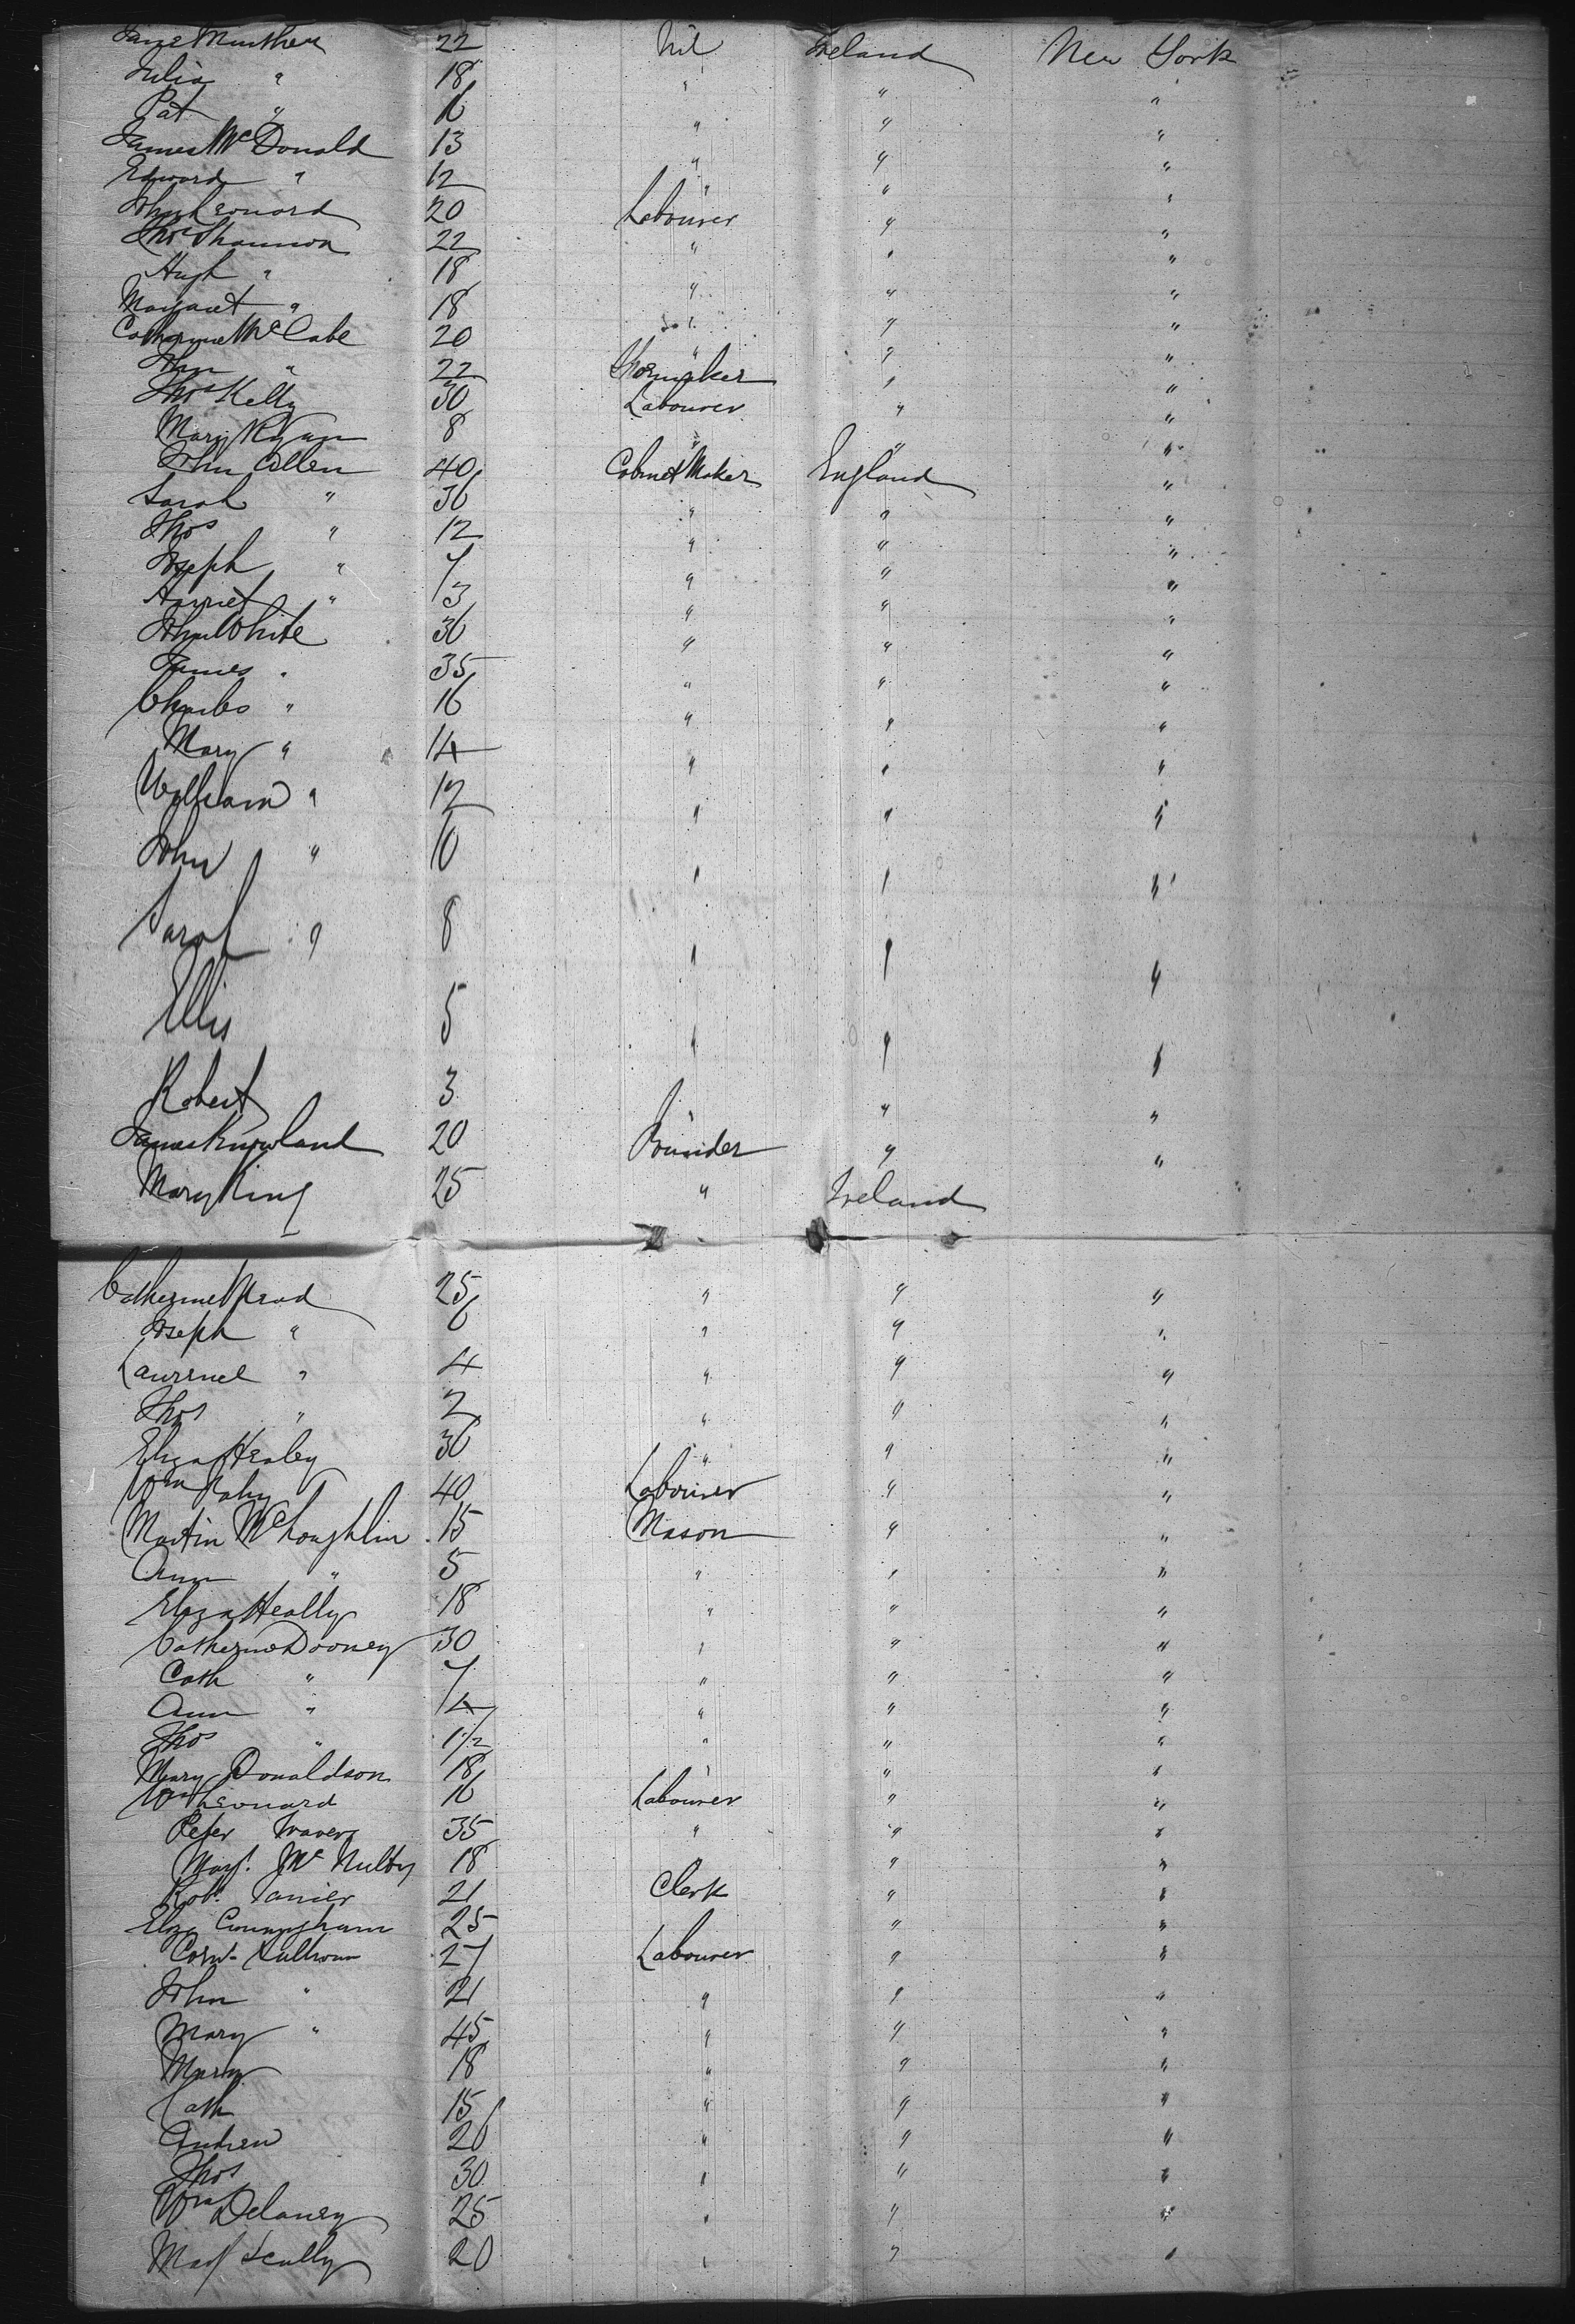 Jane 22 Nil Ireland New York
Julia " 18 " " "
Pat " 16 " " "
James McDonald 13 " " "
Edward " 12 " " "
John Leonard 20 Labourer " "
Thos Shannon 22 " " "
Hugh " 18 " " "
Margaret " 18 " "
Catherine McCabe 20 " " "
John " 22 Shoemaker " "
Thos Kelly 30 Labourer " "
Mary Ryan 8 " " "
John Allen 40 Cabinet Maker England "
Sarah " 36 " " "
Thos " 12 " " "
Joseph " 7 " " "
Harriet " 3 " " "
John White 36 " " "
James " 35 " " "
Charles " 16 " " "
Mary " 14 " " "
William " 12 " " "
John " 10 " " "
Sarah " 8 " " "
Ellis 5 " " "
Robert 3 " " "
James 20 " "
Mary King 25 " Ireland
Catherine 25 " " "
Joseph " 6 " " "
Laurence " 4 " " "
Thos " 2 " " "
Eliza Healey 36 " " "
Wm 40 Labourer " "
Martin McLoughlin 15 Mason " "
Ann " 5 " " "
Eliza Heally 18 " " "
Catherine Dooney 30 " " "
Cath " 7 " " "
Ann " 4 " " "
Thos " 1 1/2 " " "
Mary Donaldson 18 " " "
Wm Leonard 16 Labourer " "
Peter 35 " " "
Magt. McNulty 18 " " "
Robt. 21 Clerk " "
Eliza Cunningham 25 " "
27 Labourer " "
John " 21 " " "
Mary " 45 " " "
Mary 18 " " "
Cath 15 " " "
Andrew 26 " " "
Thos 30 " " "
Wm Delaney 25 " " "
Scully 20 " " "